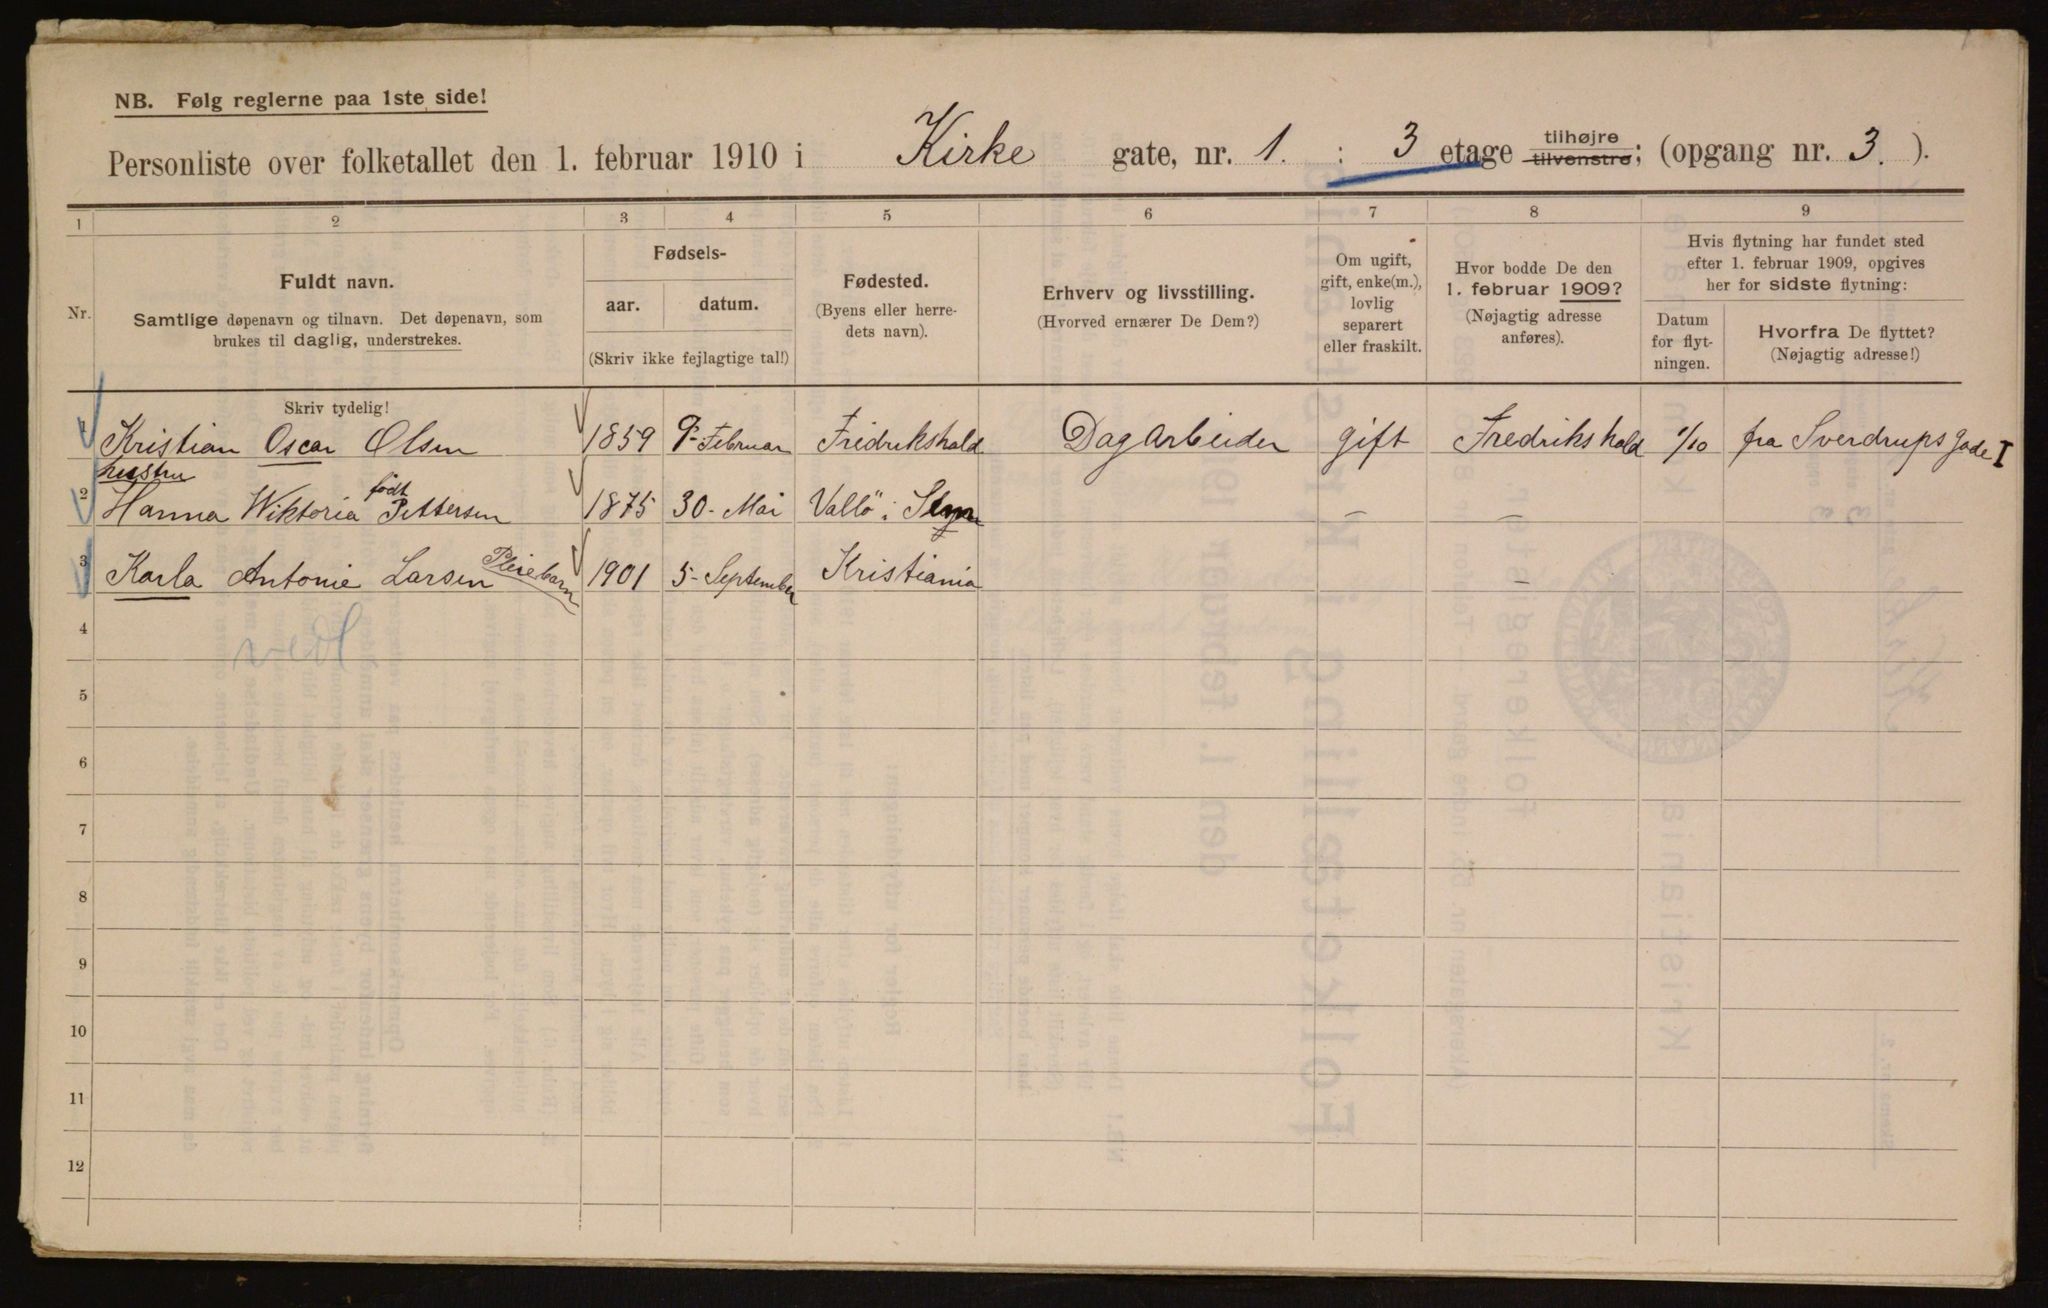 NB. Følg reglerne paa 1ste side!
Personliste over folketallet den 1. februar 1910 i Kirke gate, nr. 1. : 3 etage tilhøjre tilvenstre; (opgang nr. 3. ).
1 2 3 4 5 6 7 8 9
Nr.
Fuldt navn.
Samtlige døpenavn og tilnavn. Det døpenavn, som
brukes til daglig, understrekes.
Fødsels-
aar. datum.
(Skriv ikke fejlagtige tal!)
Fødested.
(Byens eller herre-
dets navn).
Erhverv og livsstilling.
(Hvorved ernærer De Dem?)
Om ugift,
gift, enke(m.),
lovlig
separert
eller fraskilt.
Hvor bodde De den
1. februar 1909?
(Nøjagtig adresse
anføres).
Hvis flytning har fundet sted
efter 1. februar 1909, opgives
her for sidste flytning:
Datum
for flyt-
ningen.
Hvorfra De flyttet?
(Nøjagtig adresse!)
Skriv tydelig!
1 Kristian Oscar Olsen 1859 9- Februar Fredrikshald Dagarbeider gift Fredrikshald 1/10 fra Sverdrups gade I
hustru
2 Hanna Wiktoria født Pettersen 1875 30- Mai Vallö i — —
3 Karla Antonie Larsen Pleiebarn 1901 5- September Kristiania —
4
5
6
7
8
9
10
11
12